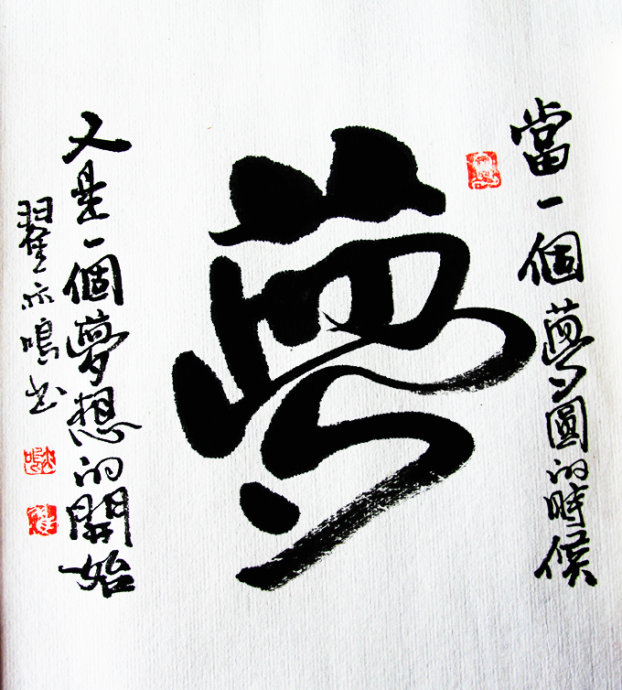 當一個夢圓的時候
夢
又是一個夢想的開始
翟亦鳴书